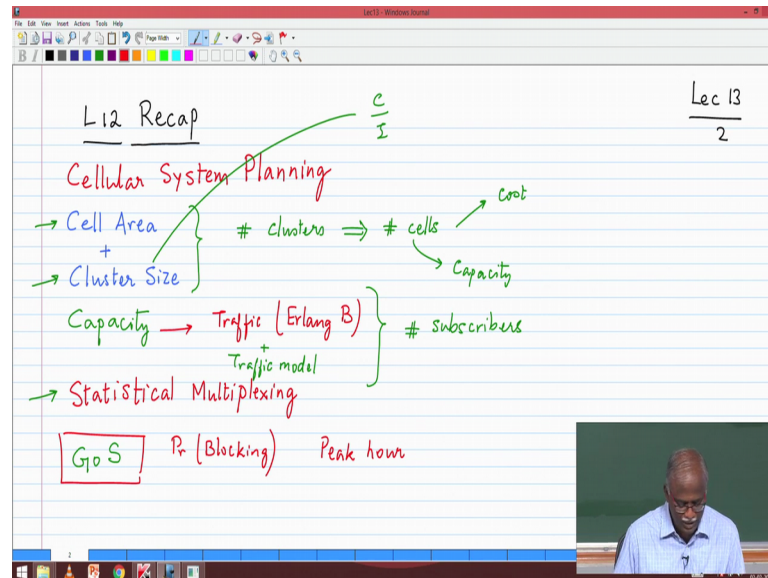 Lec13 - Windows Journal
File Edit View Insert Actions Tools Help
Page Width
B I
L12 Recap
C
I
Lec 13
2
Cellular System Planning
→ Cell Area
+
→ Cluster Size
# clusters ⇒ # cells
cost
Capacity
Capacity → Traffic (Erlang B)
+
Traffic model
# subscribers
→ Statistical Multiplexing
GoS Pr (Blocking) Peak hour
2